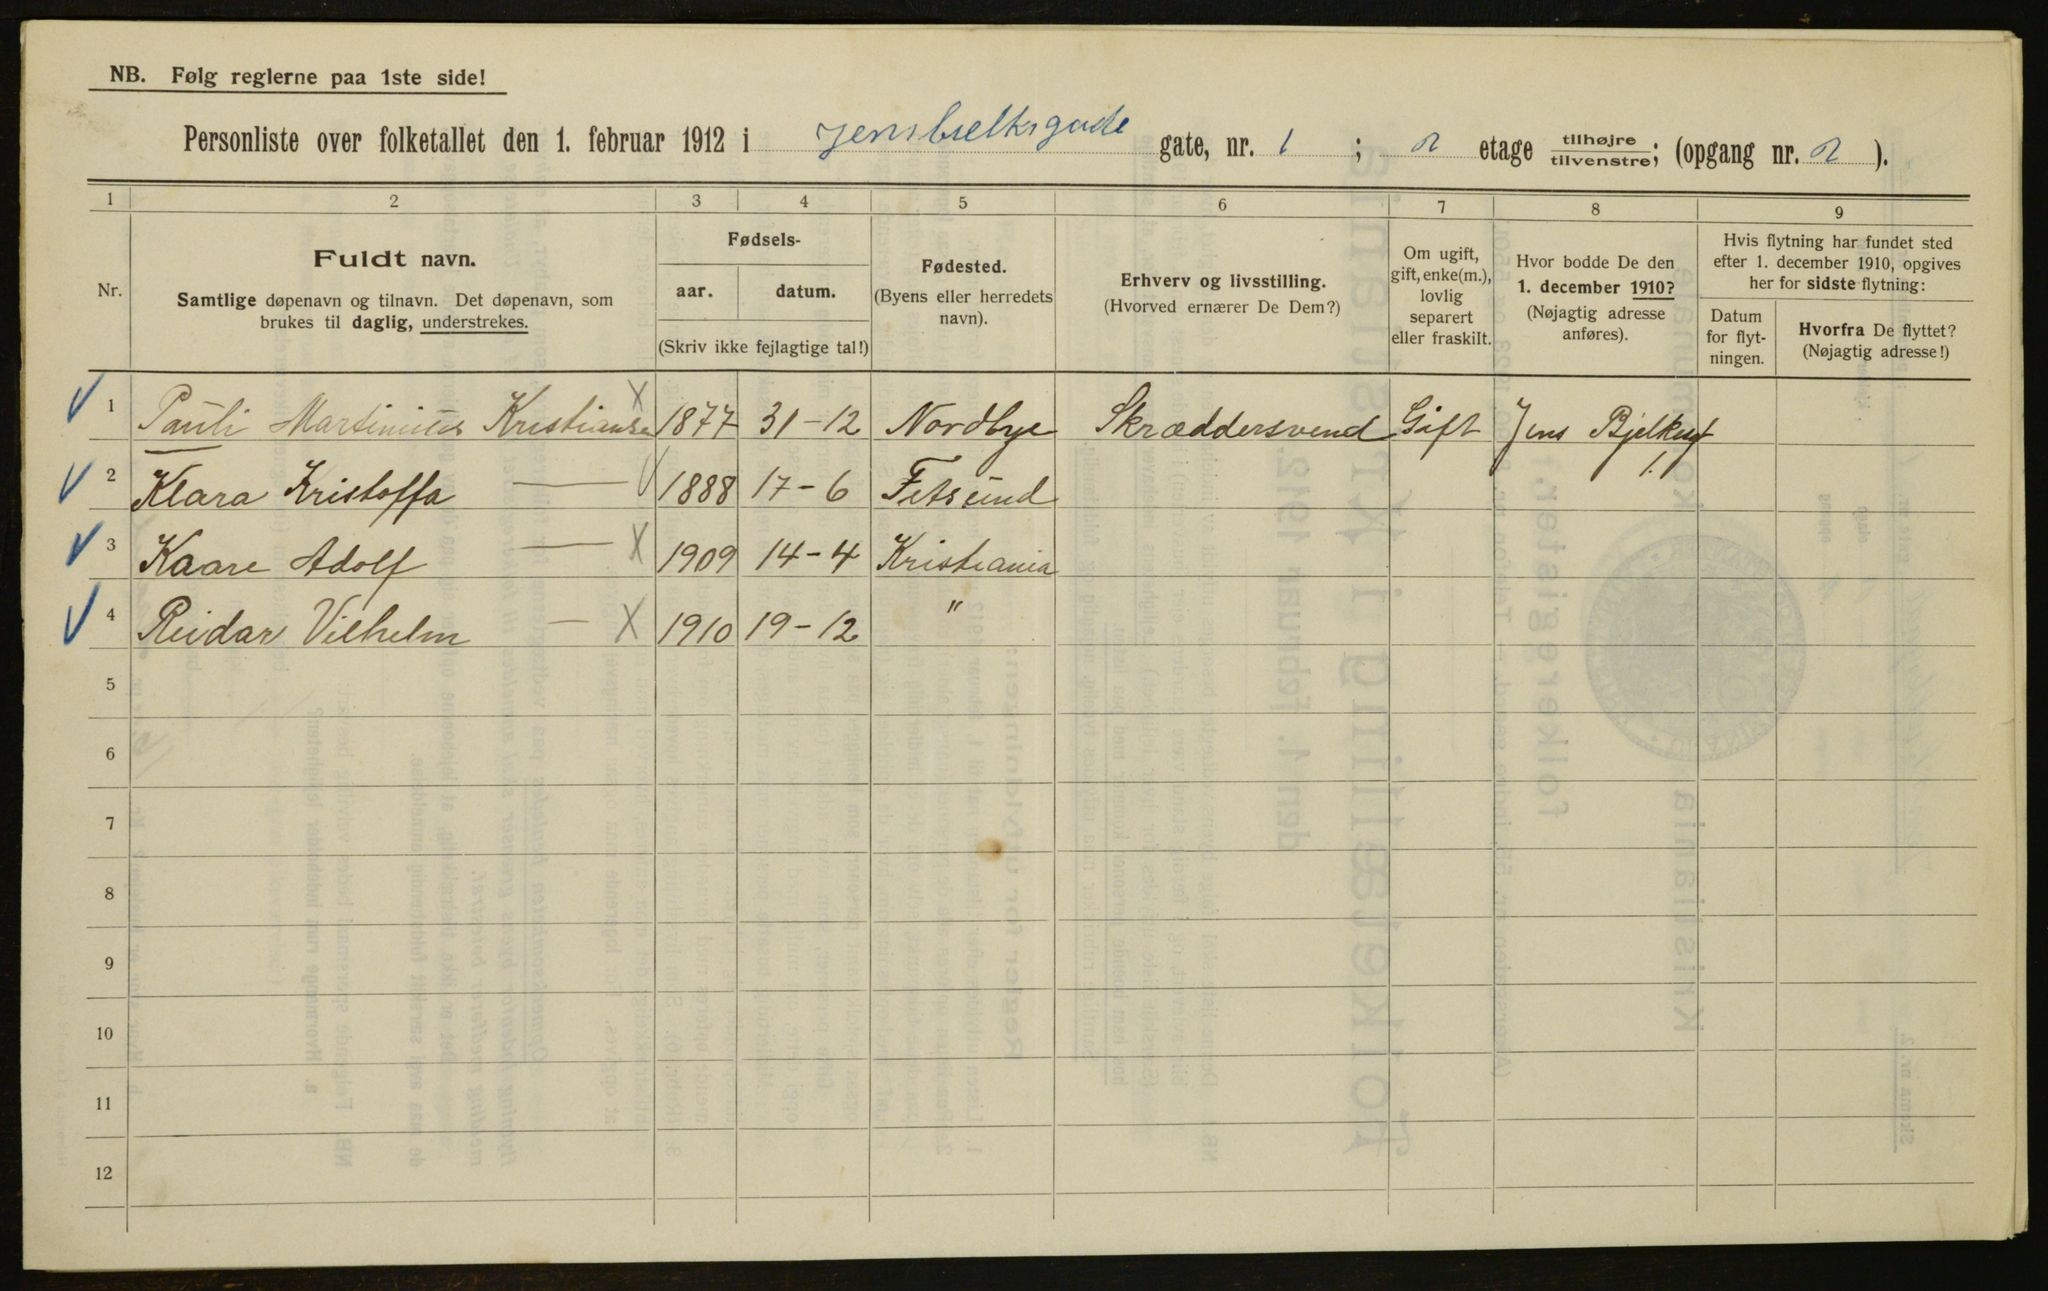 NB. Følg reglerne paa 1ste side!
Personliste over folketallet den 1. februar 1912 i Jensbielksgade gate, nr. 1 ; 2 etage tilhøjre tilvenstre; (opgang nr. 2 ).
1 2 3 4 5 6 7 8 9
Nr.
Fuldt navn.
Samtlige døpenavn og tilnavn. Det døpenavn, som
brukes til daglig, understrekes.
Fødsels-
aar. datum.
(Skriv ikke fejlagtige tal!)
Fødested.
(Byens eller herredets
navn).
Erhverv og livsstilling.
(Hvorved ernærer De Dem?)
Om ugift,
gift, enke(m.),
lovlig
separert
eller fraskilt.
Hvor bodde De den
1. december 1910?
(Nøjagtig adresse
anføres).
Hvis flytning har fundet sted
efter 1. december 1910, opgives
her for sidste flytning:
Datum
for flyt-
ningen.
Hvorfra De flyttet?
(Nøjagtig adresse!)
1 Pauli Martinius Kristiansen 1877 31-12 Nordbye Skræddersvend Gift Jens Bjelkesgt
1.
2 Klara Kristoffa — 1888 17-6 Fetsund
3 Kaare Adolf — 1909 14-4 Kristiania
4 Reidar Vilhelm — 1910 19-12 "
5
6
7
8
9
10
11
12